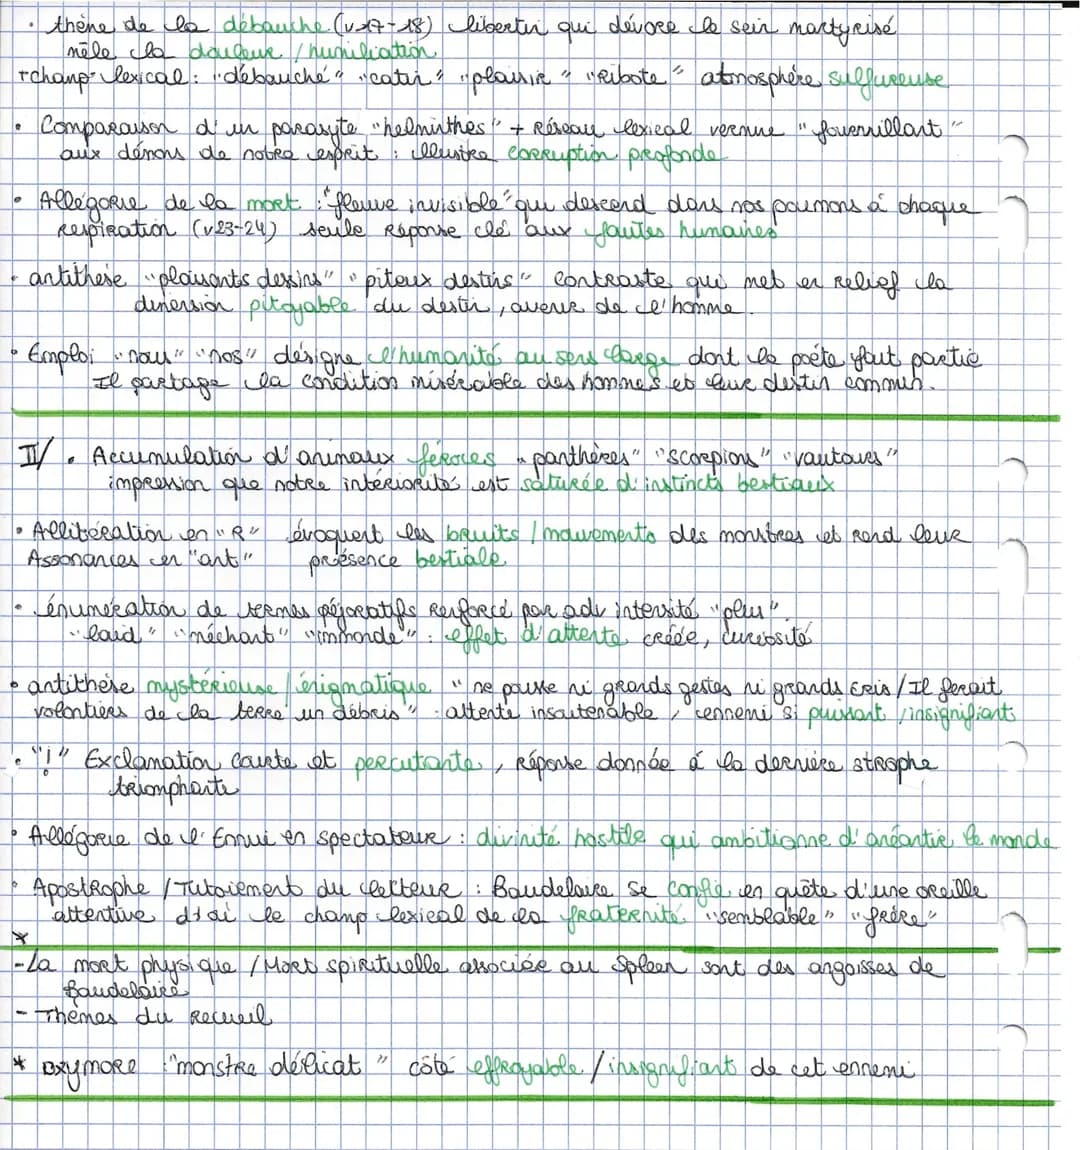 • thème de la débauche (v17-18) libertin qui dévore le sein martyrisé
mêle la douleur / humiliation
+champ lexical : "débauché" "catin" "plaisir" "Ribote" atmosphère sulfureuse
• Comparaison d'un parasyte "helminthes" + Réseau lexical vermine "fourmillant"
aux démons de notre esprit : illustre corruption profonde
• Allégorie de la mort : "fleuve invisible" qui descend dans nos poumons à chaque
respiration (v23-24) seule Réponse clé aux fautes humaines
• antithèse "plaisants dessins" "piteux destins" Contraste qui met en relief la
dimension pitoyable du destin, avenir de l'homme.
• Emploi "nous" "nos" désigne l'humanité au sens large dont le poète fait partie
Il partage la condition misérable des hommes et leur destin commun.
II/ • Accumulation d'animaux féroces "panthères" "scorpions" "vautours"
impression que notre intériorité est saturée d'instincts bestiaux
• Allitération en "R" évoquent les bruits / mouvements des monstres et rend leur
Assonances en "ant" présence bestiale
• énumération de termes péjoratifs Renforcé par adv intensité "plus"
"laid" "méchant" "immonde" : effet d'attente créée, curiosité
• antithèse mystérieuse / énigmatique "ne pousse ni grands gestes ni grands cris / Il ferait
volontiers de la terre un débris" : attente insoutenable, ennemi si puissant / insignifiant
• "!" Exclamation courte et percutante, Réponse donnée à la dernière strophe
triomphante
• Allégorie de l'Ennui en spectateur : divinité hostile qui ambitionne d'anéantir le monde
• Apostrophe / Tutoiement du lecteur : Baudelaire se confie en quête d'une oreille
attentive d'où le champ lexical de la fraternité "semblable" "frère"
*
- La mort physique / Mort spirituelle associée au Spleen sont des angoisses de
Baudelaire
- Thèmes du Recueil
* oxymore : "monstre délicat" côté effroyable / insignifiant de cet ennemi